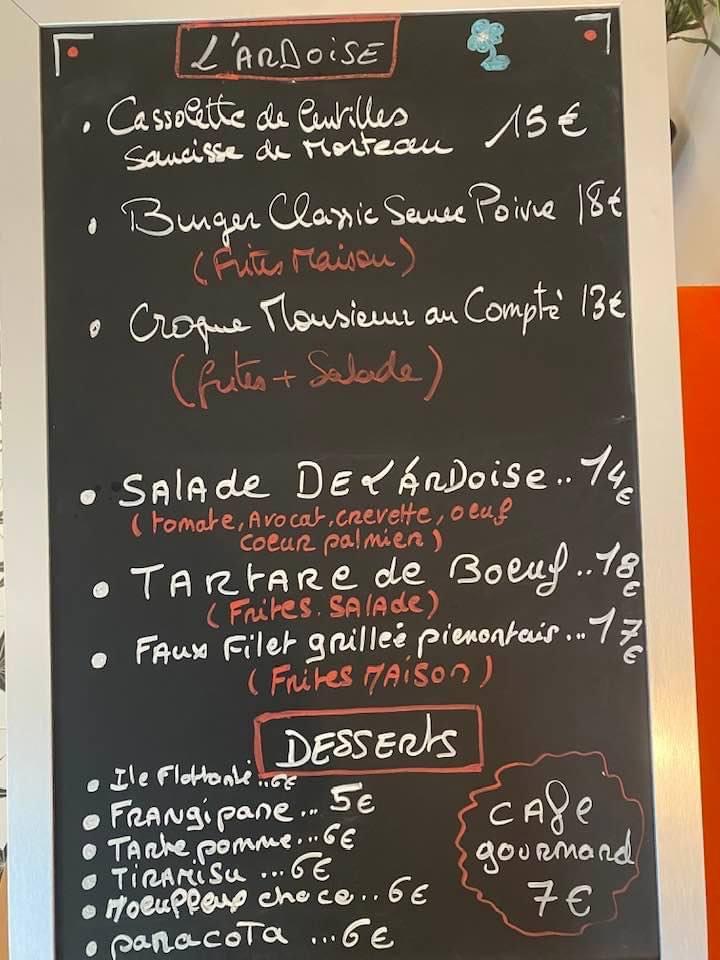 L'ARDOISE
• Cassolette de lentilles
Saucisse de Morteau 15€
• Burger Classic Sauce Poivre 18€
(Frites Maison)
• Croque Monsieur au Compté 13€
(frites + Salade)
• SALADE DE L'ÁRDOISE.. 14€
(tomate, Avocat, crevette, oeuf
coeur palmier)
• TARTARE de Boeuf.. 18€
(FRITES. SALADE)
• FAUX Filet grilleé piemontais... 17€
(FRITES MAISON)
DESSERTS
• Ile Flottante ..6€
• FRANgipane... 5€
• TARte pomme... 6€
• TIRAMISU ... 6€
• Moelleux choco.. 6€
• panacoTa ... 6€
CAfe
gourmand
7€